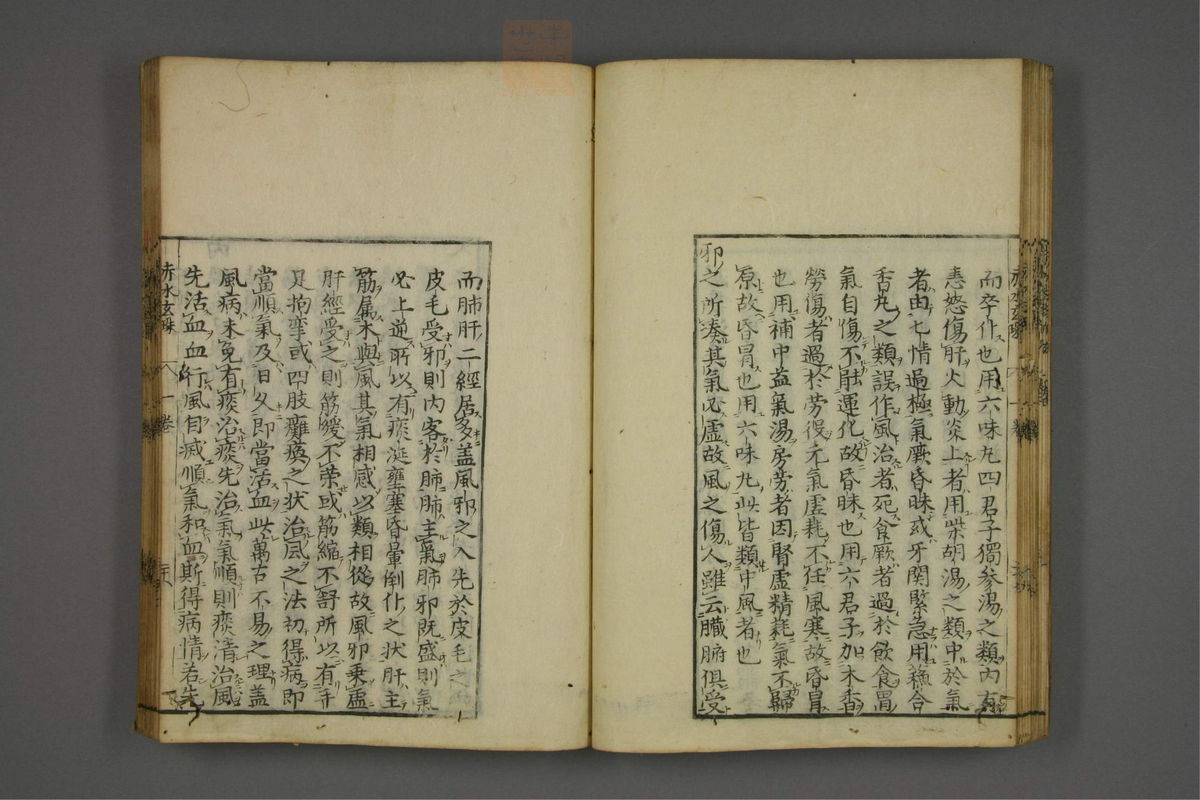 而卒仆也用六味丸四君子獨參湯之類内有
恚怒傷肝火動炎上者用柴胡湯之類中於氣
者由七情過極氣厥昏昧或牙関緊急用蘓合
香丸之類誤作風治者死食厥者過於飲食胃
氣自傷不能運化故昏昧也用六君子加木香
勞傷者過於勞役元氣虚耗不任風寒故昏冒
也用補中益氣湯房勞者因腎虚精耗氣不歸
原故昏冒也用六味丸此皆類中風者也
邪之所湊其氣必虚故風之傷人雖云臓腑俱受
而肺肝二經居多盖風邪之入先於皮毛之
皮毛受邪則内客於肺肺主氣肺邪既盛則氣
必上逆所以有痰涎壅塞昏暈倒仆之状肝主
筋属木與風其氣相感以類相從故風邪乗虚
肝經受之則筋緩不榮或筋縮不舒所以有手
足拘攣或四肢癱瘓之状治風之法初得病即
當順氣及日久即當活血此萬古不易之理盖
風病未免有痰治痰先治氣氣順則痰清治風
先活血血行風自滅順氣和血斯得病情若先
赤水玄珠 一卷